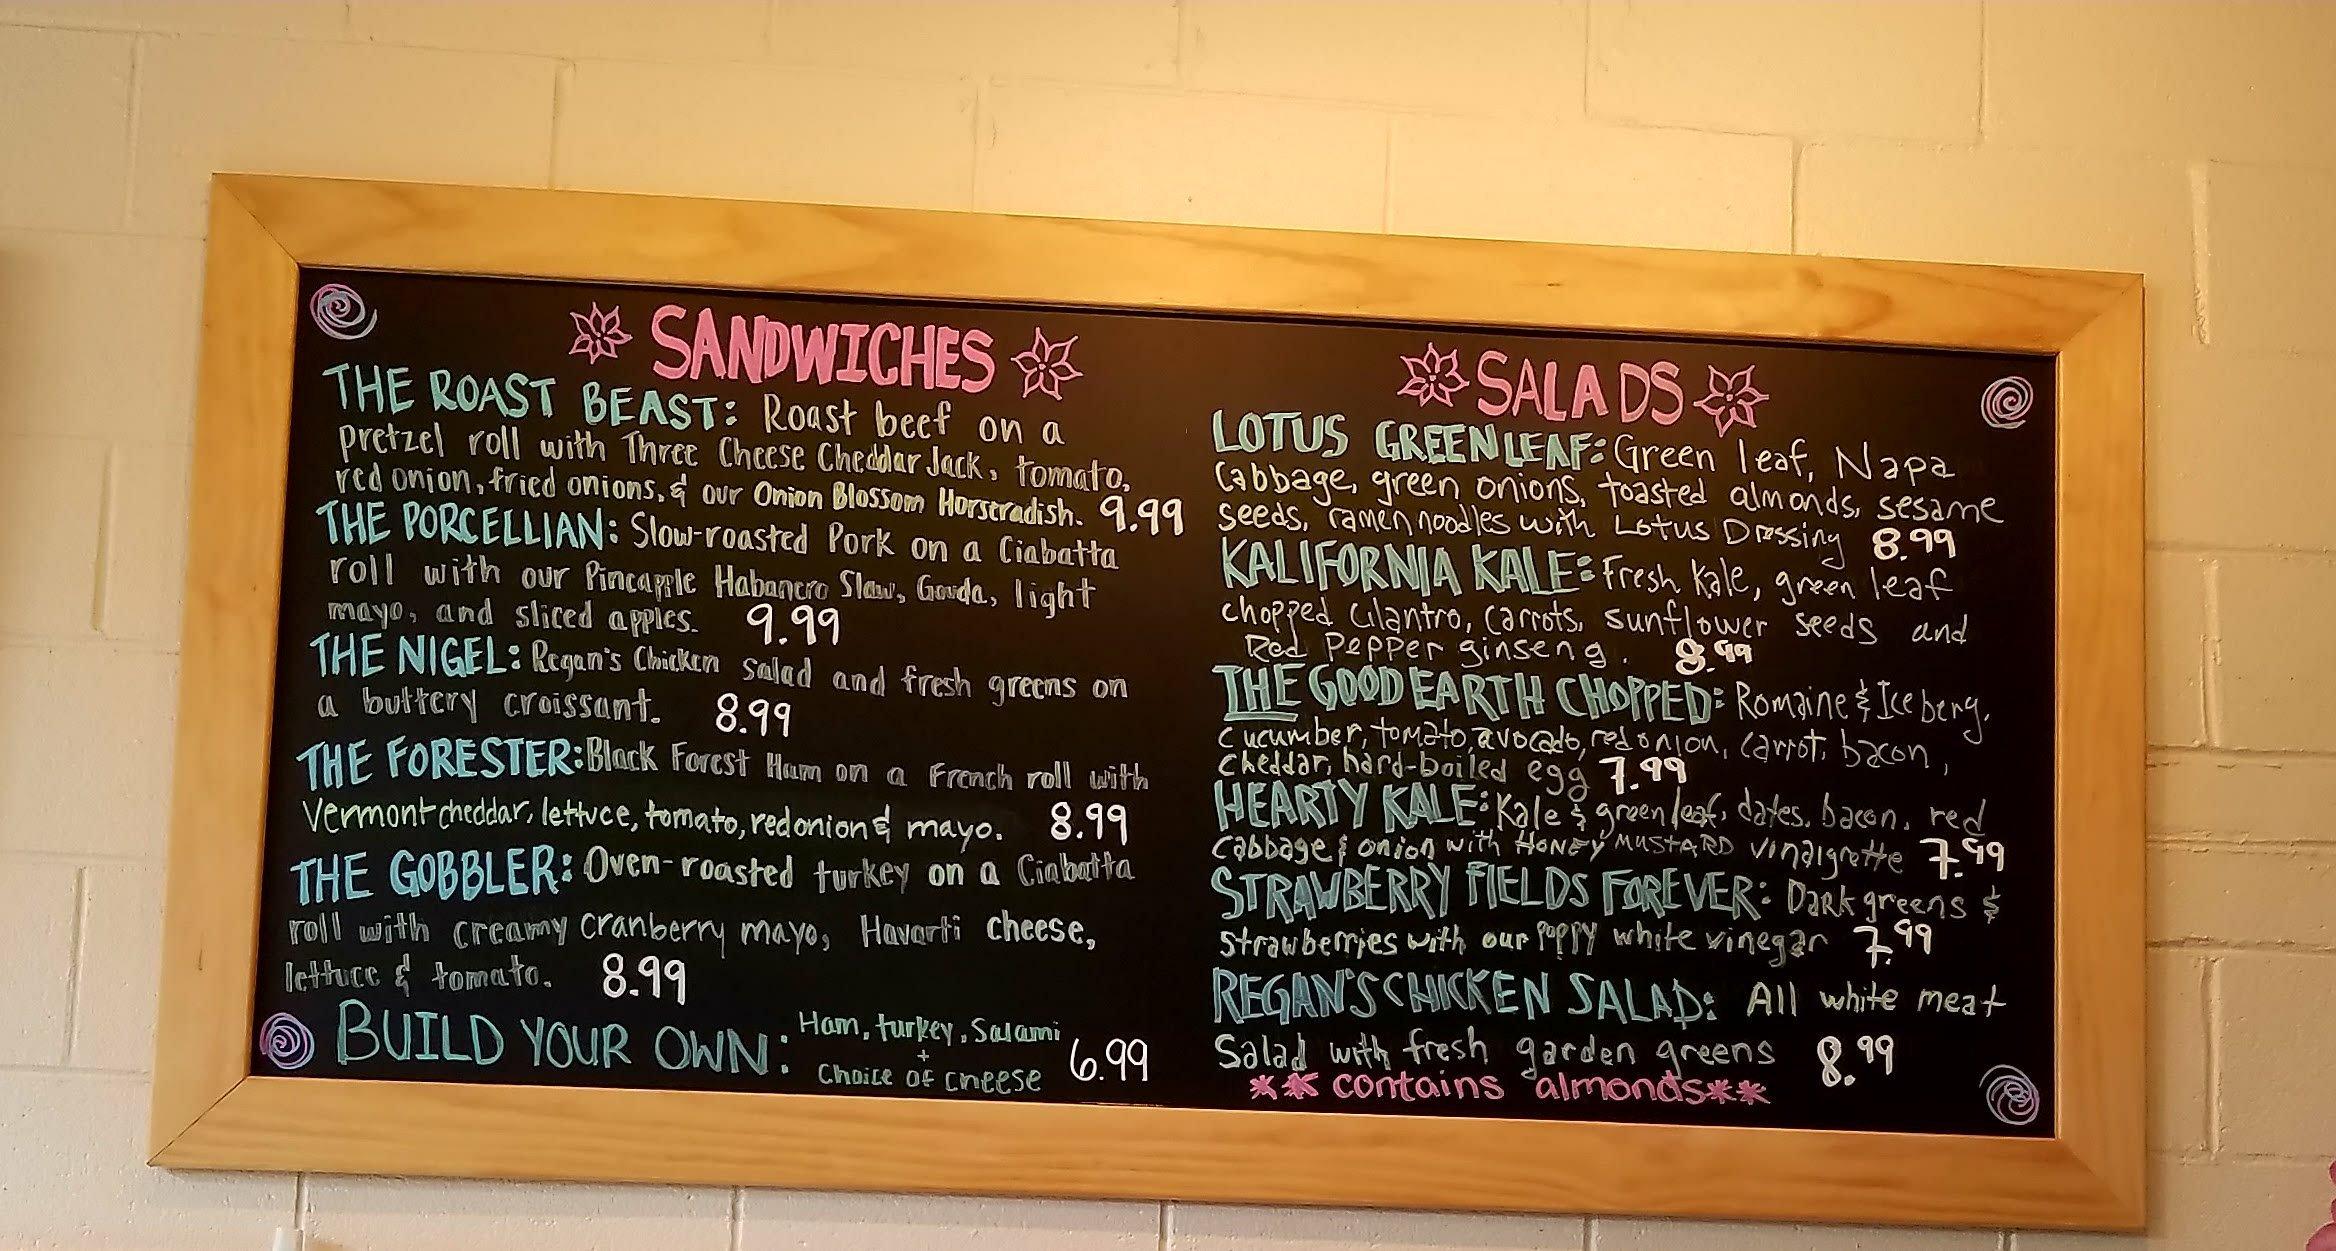 SANDWICHES
THE ROAST BEAST: Roast beef on a
pretzel roll with Three Cheese Cheddar Jack, tomato,
red onion, fried onions, & our Onion Blossom Horseradish. 9.99
THE PORCELLIAN: Slow-roasted Pork on a Ciabatta
roll with our Pineapple Habanero Slaw, Gouda, light
mayo, and sliced apples. 9.99
THE NIGEL: Regan's Chicken salad and fresh greens on
a buttery croissant. 8.99
THE FORESTER: Black Forest Ham on a French roll with
Vermont cheddar, lettuce, tomato, red onion & mayo. 8.99
THE GOBBLER: Oven-roasted turkey on a Ciabatta
roll with creamy cranberry mayo, Havarti cheese,
lettuce & tomato. 8.99
BUILD YOUR OWN: Ham, turkey, Salami
+
Choice of cheese 6.99
SALADS
LOTUS GREEN LEAF: Green leaf, Napa
Cabbage, green onions, toasted almonds, sesame
seeds, ramen noodles with Lotus Dressing 8.99
KALIFORNIA KALE: Fresh Kale, green leaf
chopped Cilantro, Carrots, sunflower seeds and
Red Pepper ginseng. 8.99
THE GOOD EARTH CHOPPED: Romaine & Iceberg,
cucumber, tomato, avocado, red onion, carrot, bacon,
cheddar, hard-boiled egg 7.99
HEARTY KALE: Kale & green leaf, dates, bacon, red
cabbage & onion with HONEY MUSTARD vinaigrette 7.99
STRAWBERRY FIELDS FOREVER: Dark greens &
strawberries with our poppy white vinegar 7.99
REGAN'S CHICKEN SALAD: All white meat
Salad with fresh garden greens 8.99
** contains almonds**